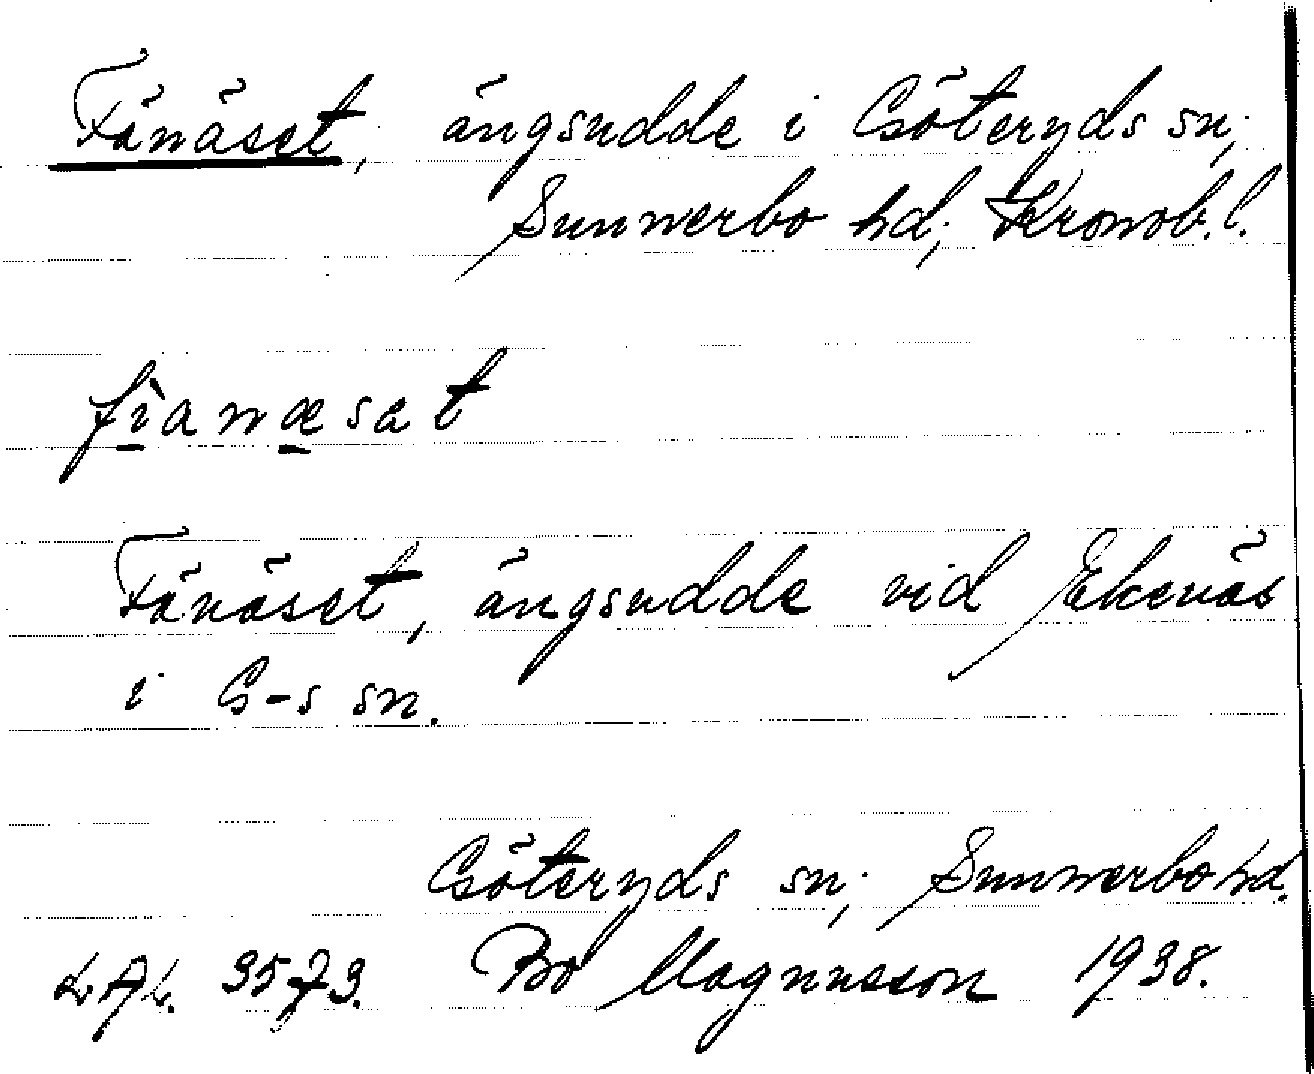 Fänäset, ängsudde i Göteryds sn,
Sunnerbo hd, Kronob. l.
fìanæsat
Fänäset, ängsudde vid Ekenäs
i G-s sn.
Göteryds sn, Sunnerbo hd.
LAL. 3573. Bo Magnusson 1938.